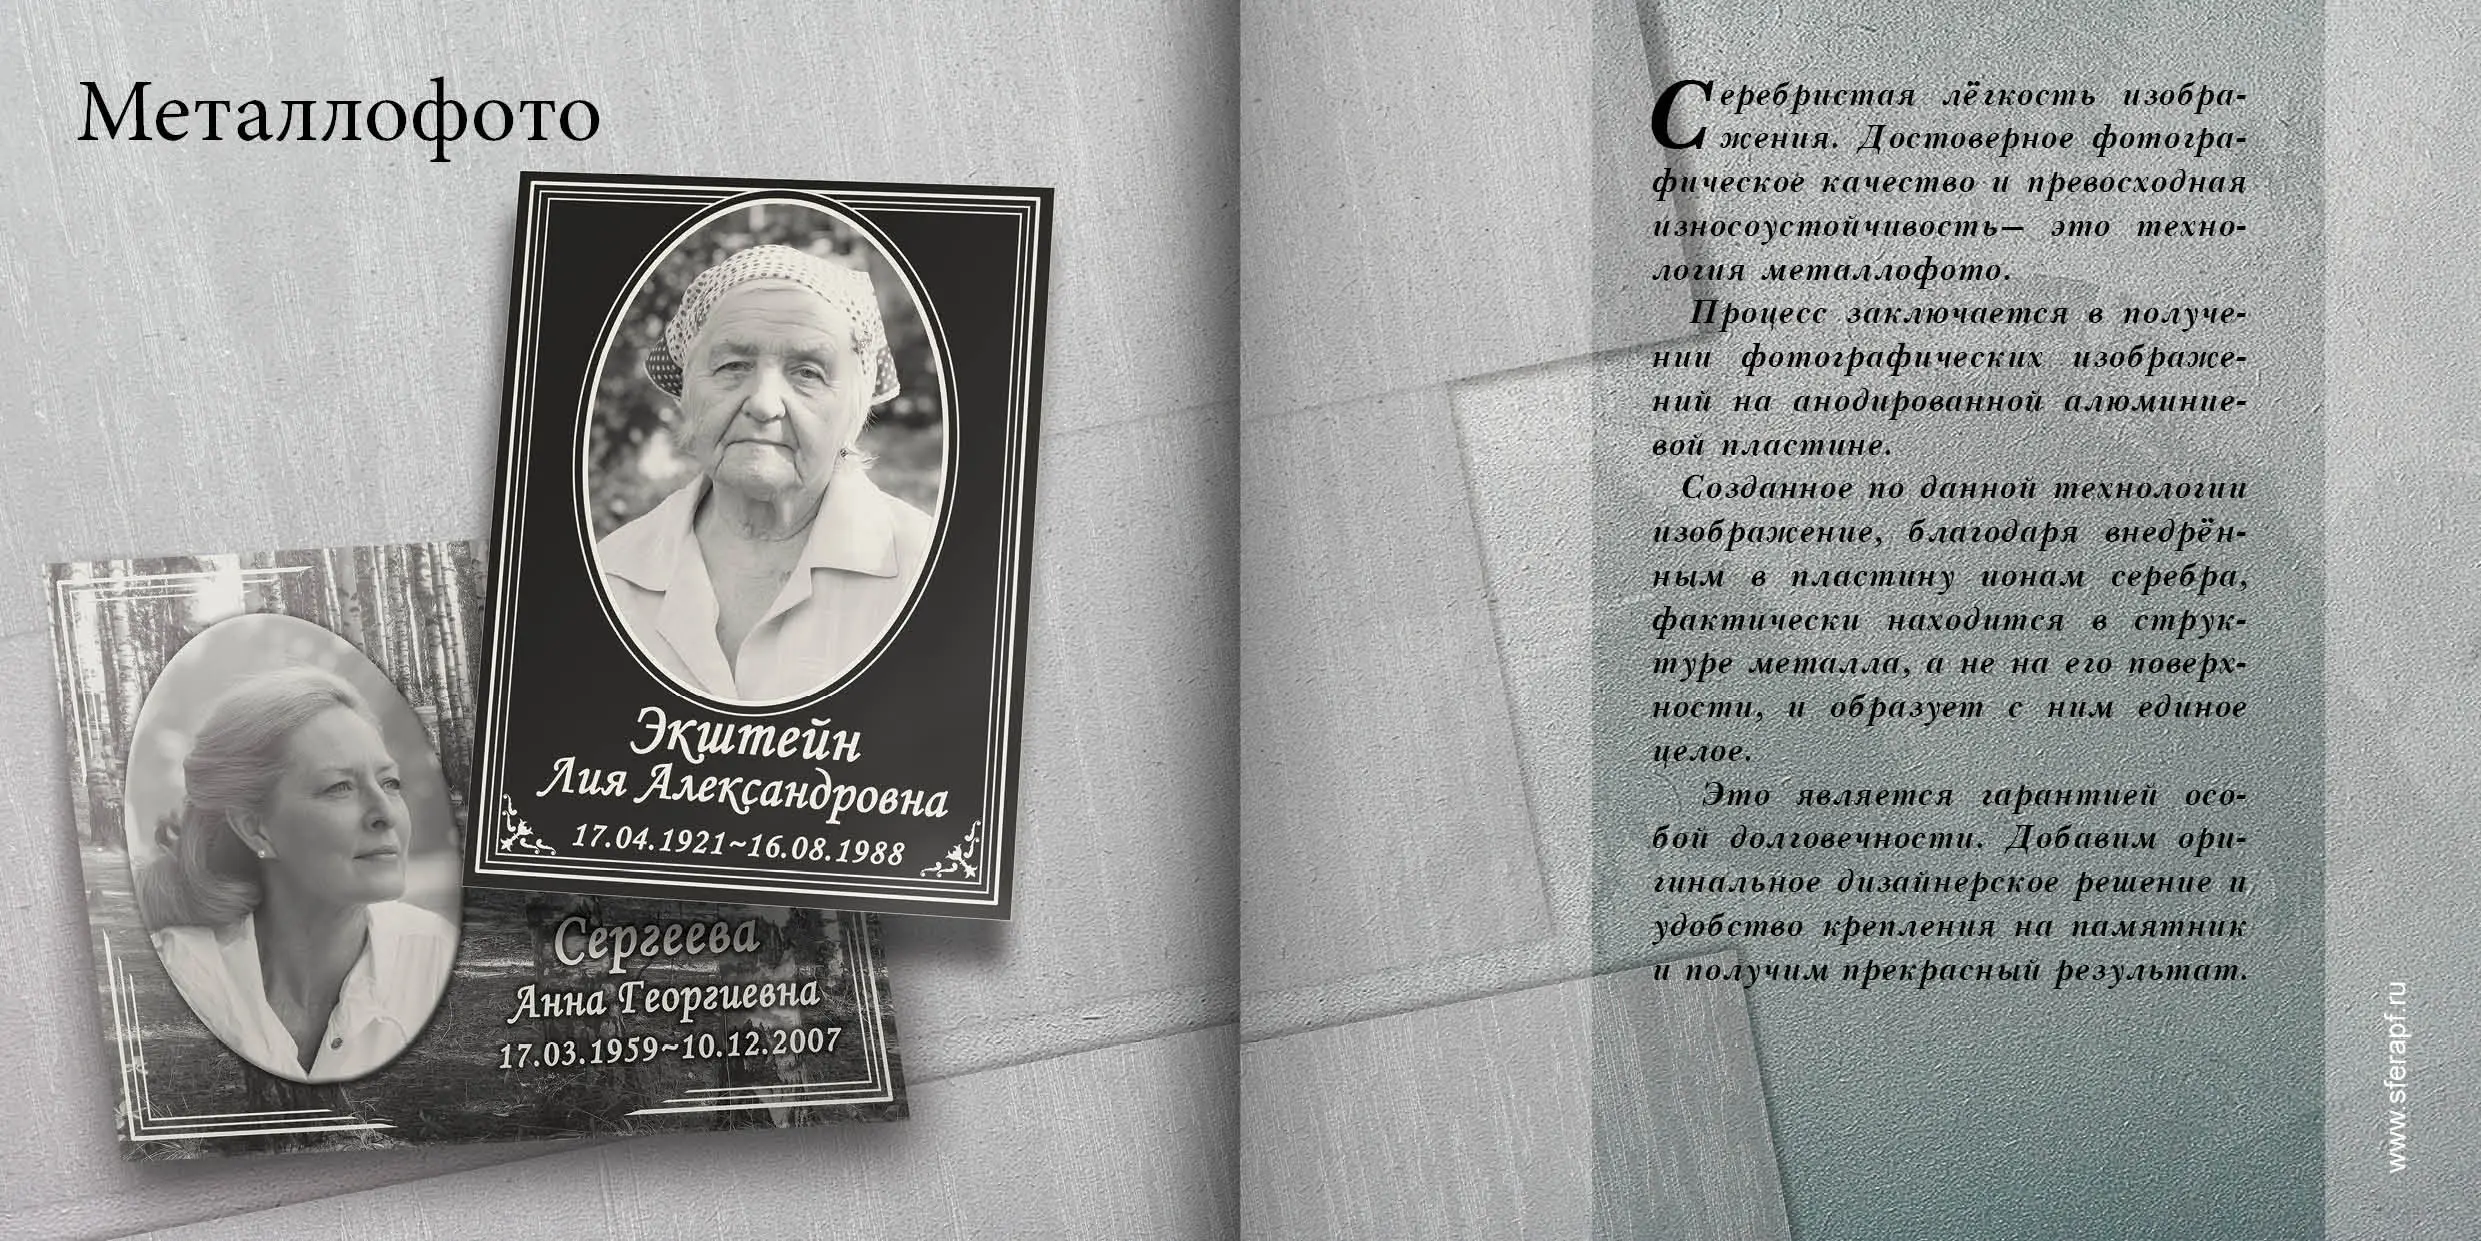 Металлофото
Экштейн
Лия Александровна
17.04.1921~16.08.1988
Сергеева
Анна Георгиевна
17.03.1959~10.12.2007
Серебристая лёгкость изобра-
жения. Достоверное фотогра-
фическое качество и превосходная
износоустойчивость— это техно-
логия металлофото.
Процесс заключается в получе-
нии фотографических изображе-
ний на анодированной алюминие-
вой пластине.
Созданное по данной технологии
изображение, благодаря внедрён-
ным в пластину ионам серебра,
фактически находится в струк-
туре металла, а не на его поверх-
ности, и образует с ним единое
целое.
Это является гарантией осо-
бой долговечности. Добавим ори-
гинальное дизайнерское решение и
удобство крепления на памятник
и получим прекрасный результат.
www.sferapf.ru